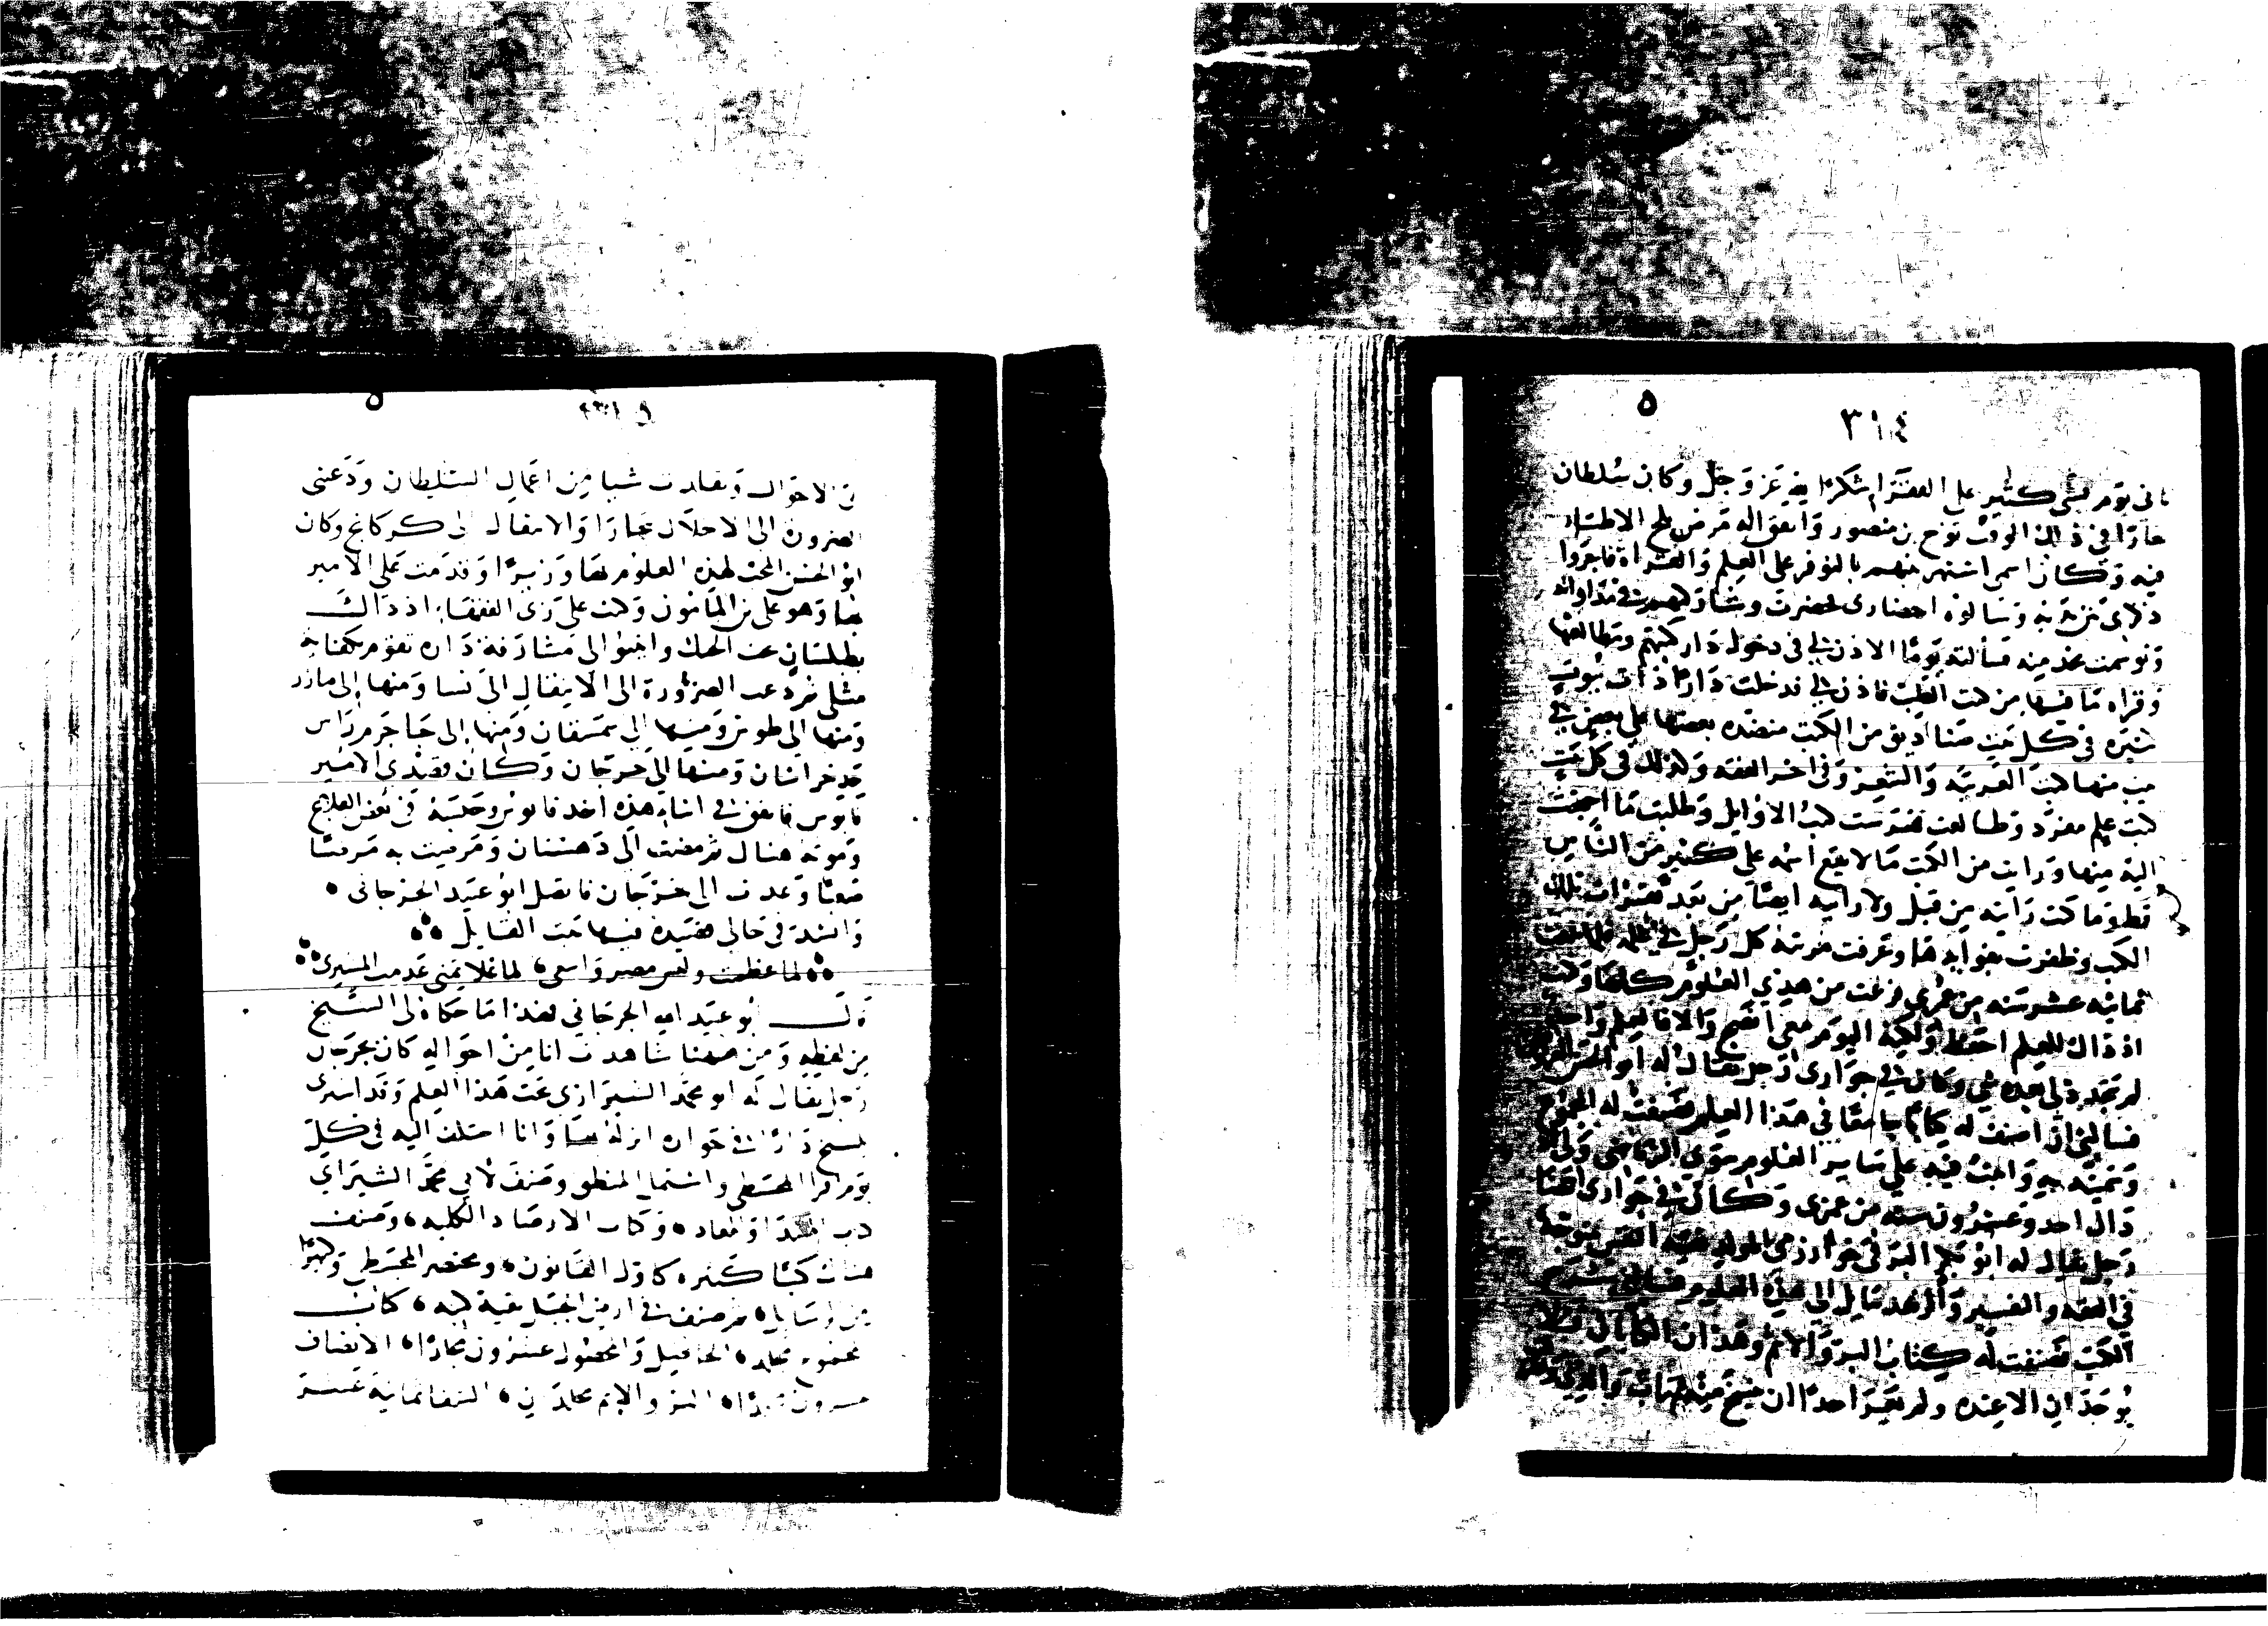 ٣١٤
ثاني يوم بشي كثير على الفقرا شكرا لله عز وجل وكان سلطان
بخارا في ذلك الوقت نوح بن منصور واتفق له مرض الاطباء
فيه وكان اسمي اشتهر بينهم بالتوفر على العلم والقراة فاجروا
ذكري بين يديه وسالوه احضاري فحضرت وشاركتهم في مداواته
وتوسمت بخدمته فسألته يوما الاذن لي في دخول دار كتبهم ومطالعتها
وقراه ما فيها من كتب الطب فاذن لي فدخلت دارا ذات بيوت
كثيره في كل بيت صناديق من الكتب منضده بعضها على بعض في
بيت منها كتب العربيه والشعر وفي اخر الفقه وكذلك في كل بيت
كتب علم مفرد وطالعت فهرست كتب الاوايل وطلبت ما احتجت
اليه منها ورايت من الكتب ما لا يقع اسمه على كثير من الناس
قط وما كنت رايته من قبل ولا رايته ايضا من بعد فقرات تلك
الكتب وظفرت بفوايدها وعرفت مرتبة كل رجل في علمه فلما بلغت
ثمانيه عشر سنه من عمري فرغت من هذه العلوم كلها وكنت
اذ ذاك للعلم احفظ ولكنه اليوم معي انضج والا فالعلم واحد
لم يتجدد لي بعده شي وكان في جواري رجل يقال له ابو الحسن
فسالني ان اصنف له كتابا جامعا في هذا العلم فصنفت له المجموع
وسميته به واتيت فيه على ساير العلوم سوى الرياضي ولي
اذ ذاك احد وعشرون سنه من عمري وكان في جواري ايضا
رجل يقال له ابو بكر البرقي خوارزمي المولد فقيه النفس متوحد
في الفقه والتفسير والزهد مايل الى هذه العلوم فسالني شرح
الكتب فصنفت له كتاب البر والاثم وهذان الكتابان
يوجدان الا عنده ولم يعير احدا ان ينسخ
٣١٥
بي الاحوال وتقلدت شيا من اعمال السلطان ودعتني
الضرورة الى الاحلال ببخارا والانتقال الى كركانج وكان
ابو الحسن المحب لهذه العلوم بها وزيرا وقدمت على الامير
بها وهو علي بن المامون وكنت على زي الفقها اذ ذاك
بطيلسان تحت الحنك واثبتوا لي مشارفة داره تقوم بكفايه
مثلي ثم دعت الضرورة الى الانتقال الى نسا ومنها الى
ومنها الى طوس ومنها الى سمنقان ومنها الى جاجرم راس
حد خراسان ومنها الى جرجان وكان قصدي الامير
قابوس فاتفق في اثناء هذه اخذ قابوس وحبسه في بعض القلاع
وموته هناك ثم مضيت الى دهستان ومرضت به مرضا
صعبا وعدت الى جرجان فاتصل ابو عبيد الجرجاني
وانشدت في حالي قصيدة فيها بيت القايل
لما عظمت وليس مصر واسعي لما غلا ثمني عدمت المشتري
قال ابو عبيد الله الجرجاني فهذا ما حكاه لي الشيخ
من لفظه ومن ههنا شاهدت انا من احواله كان بجرجان
رجل يقال له ابو محمد الشيرازي يحب هذا العلم وقد اشترى
للشيخ دارا في جواره انزله بها وانا اختلف اليه في كل
يوم اقرا المجسطي واستملي المنطق وصنف لابي محمد الشيرازي
كتاب المبدا والمعاد وكتاب الارصاد الكليه وصنف
هناك كتبا كثيره كاول القانون ومختصر المجسطي وكثيرا
من الرسايل ثم صنف في ارض الجبل بقية كتبه كتاب
المجموع مجلده الحاصل والمحصول عشرون مجلدا الانصاف
عشرون مجلدا البر والاثم مجلدان الشفا ثمانية عشر